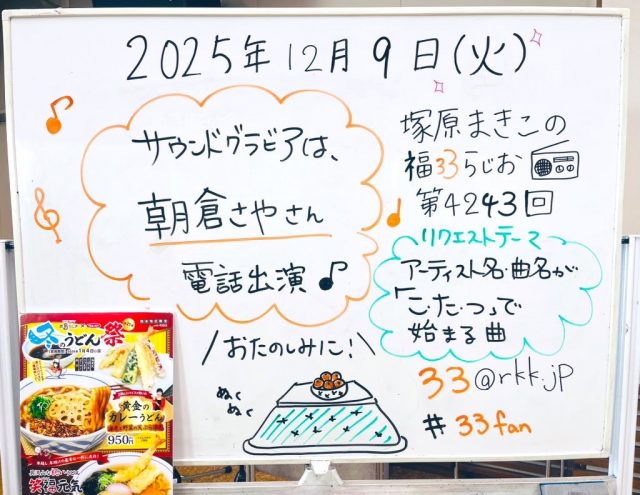 2025年12月9日(火)
サウンドグラビアは、
朝倉さやさん
電話出演
塚原まきこの
福33らじお
第4243回
リクエストテーマ
アーティスト名・曲名が
「こ・た・つ」で
始まる曲
おたのしみに!
ぬく
ぬく
33@rkk.jp
#33fan
冬のうどん祭
黄金の
カレーうどん
950円
笑福元気